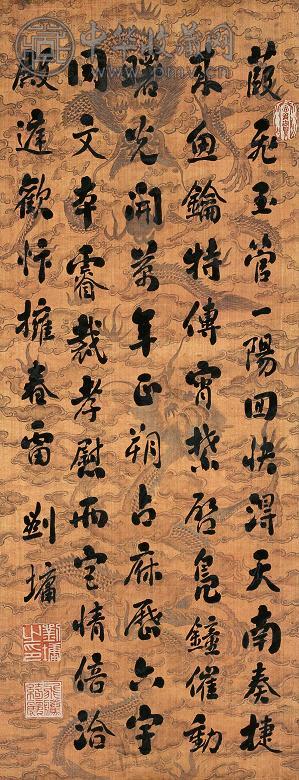 葭飛玉管一陽回快得天南奏捷
来魚鑰特傳宵禁啓鳧鐘催動
曙光開萬年正朔占庥歷六宇
同文本睿裁孝慰兩宮情倍洽
殿廷歡忭擁春雷
劉墉
劉墉之印
中华收藏网